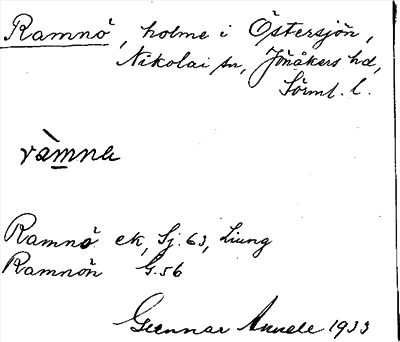 Ramnö, holme i Östersjön,
Nikolai sn, Jönåkers hd,
Sörml. l.
ràmna
Ramnö ek, Sj. 63, Liung
Ramnön G. 56
Gunnar Annell 1933